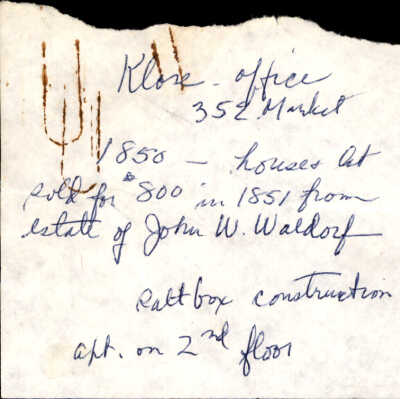 Klose - office
352 Market
1850 - houses lot
sold for $800 in 1851 from
estate of John W. Waldorf
saltbox construction
apt. on 2nd floor